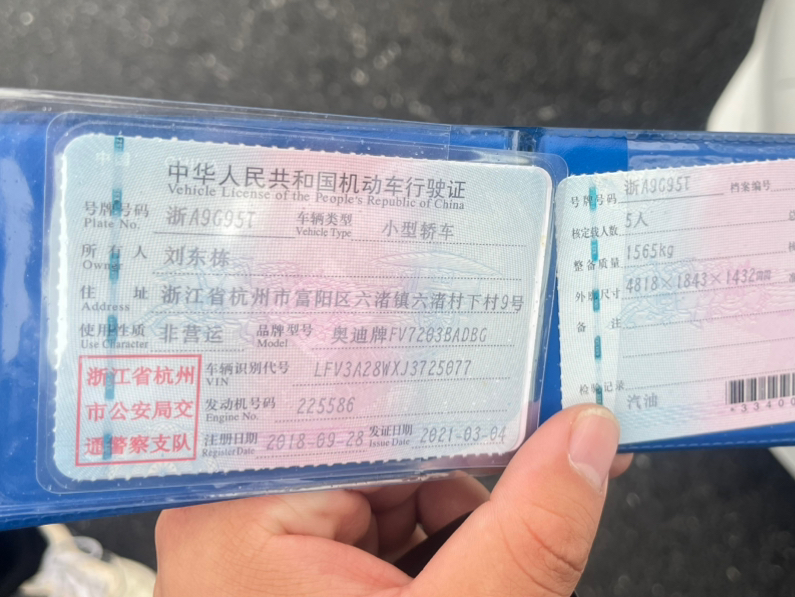 中华人民共和国机动车行驶证
Vehicle License of the People's Republic of China
号牌号码 Plate No. 浙A9G95T 车辆类型 Vehicle Type 小型轿车
所有人 Owner 刘东栋
住址 Address 浙江省杭州市富阳区六渚镇六渚村下村9号
使用性质 Use Character 非营运 品牌型号 Model 奥迪牌FV7203BADBG
车辆识别代号 VIN LFV3A28WXJ3725077
发动机号码 Engine No. 225586
注册日期 Register Date 2018-09-28 发证日期 Issue Date 2021-03-04
浙江省杭州
市公安局交
通警察支队
号牌号码 浙A9G95T 档案编号
核定载人数 5人
整备质量 1565kg
外廓尺寸 4818×1843×1432mm
备注
检验记录
汽油
*33400